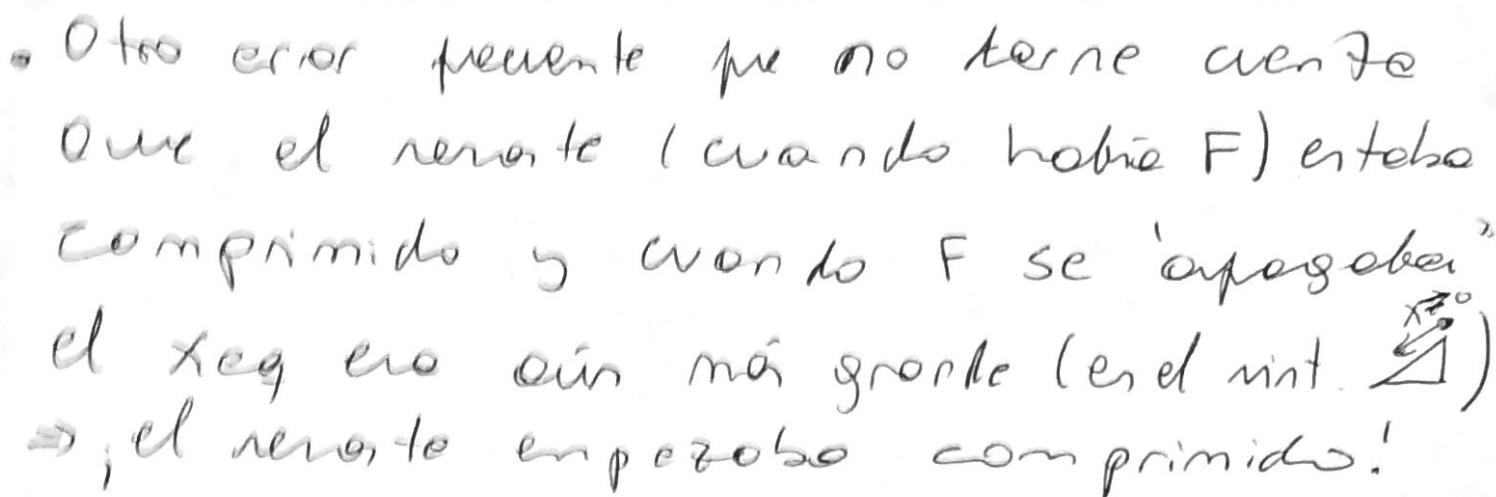 • Otro error frecuente fue no terne cuenta
que el resorte (cuando había F) estaba
comprimido y cuando F se "apagaba"
el xeq era aún más grande (en el sist. x=0)
⇒ ¡el resorte empezaba comprimido!